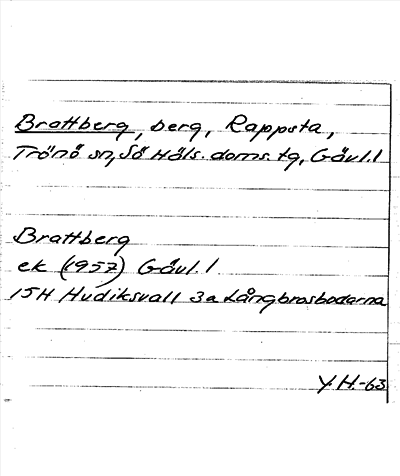 Brattberg, berg, Rappsta,
Trönö sn, Sö Häls. doms. tg, Gävl. l
Brattberg
ek (1957) Gävl. l
15H Hudiksvall 3a Långbrosbodarna
Y.H.-63